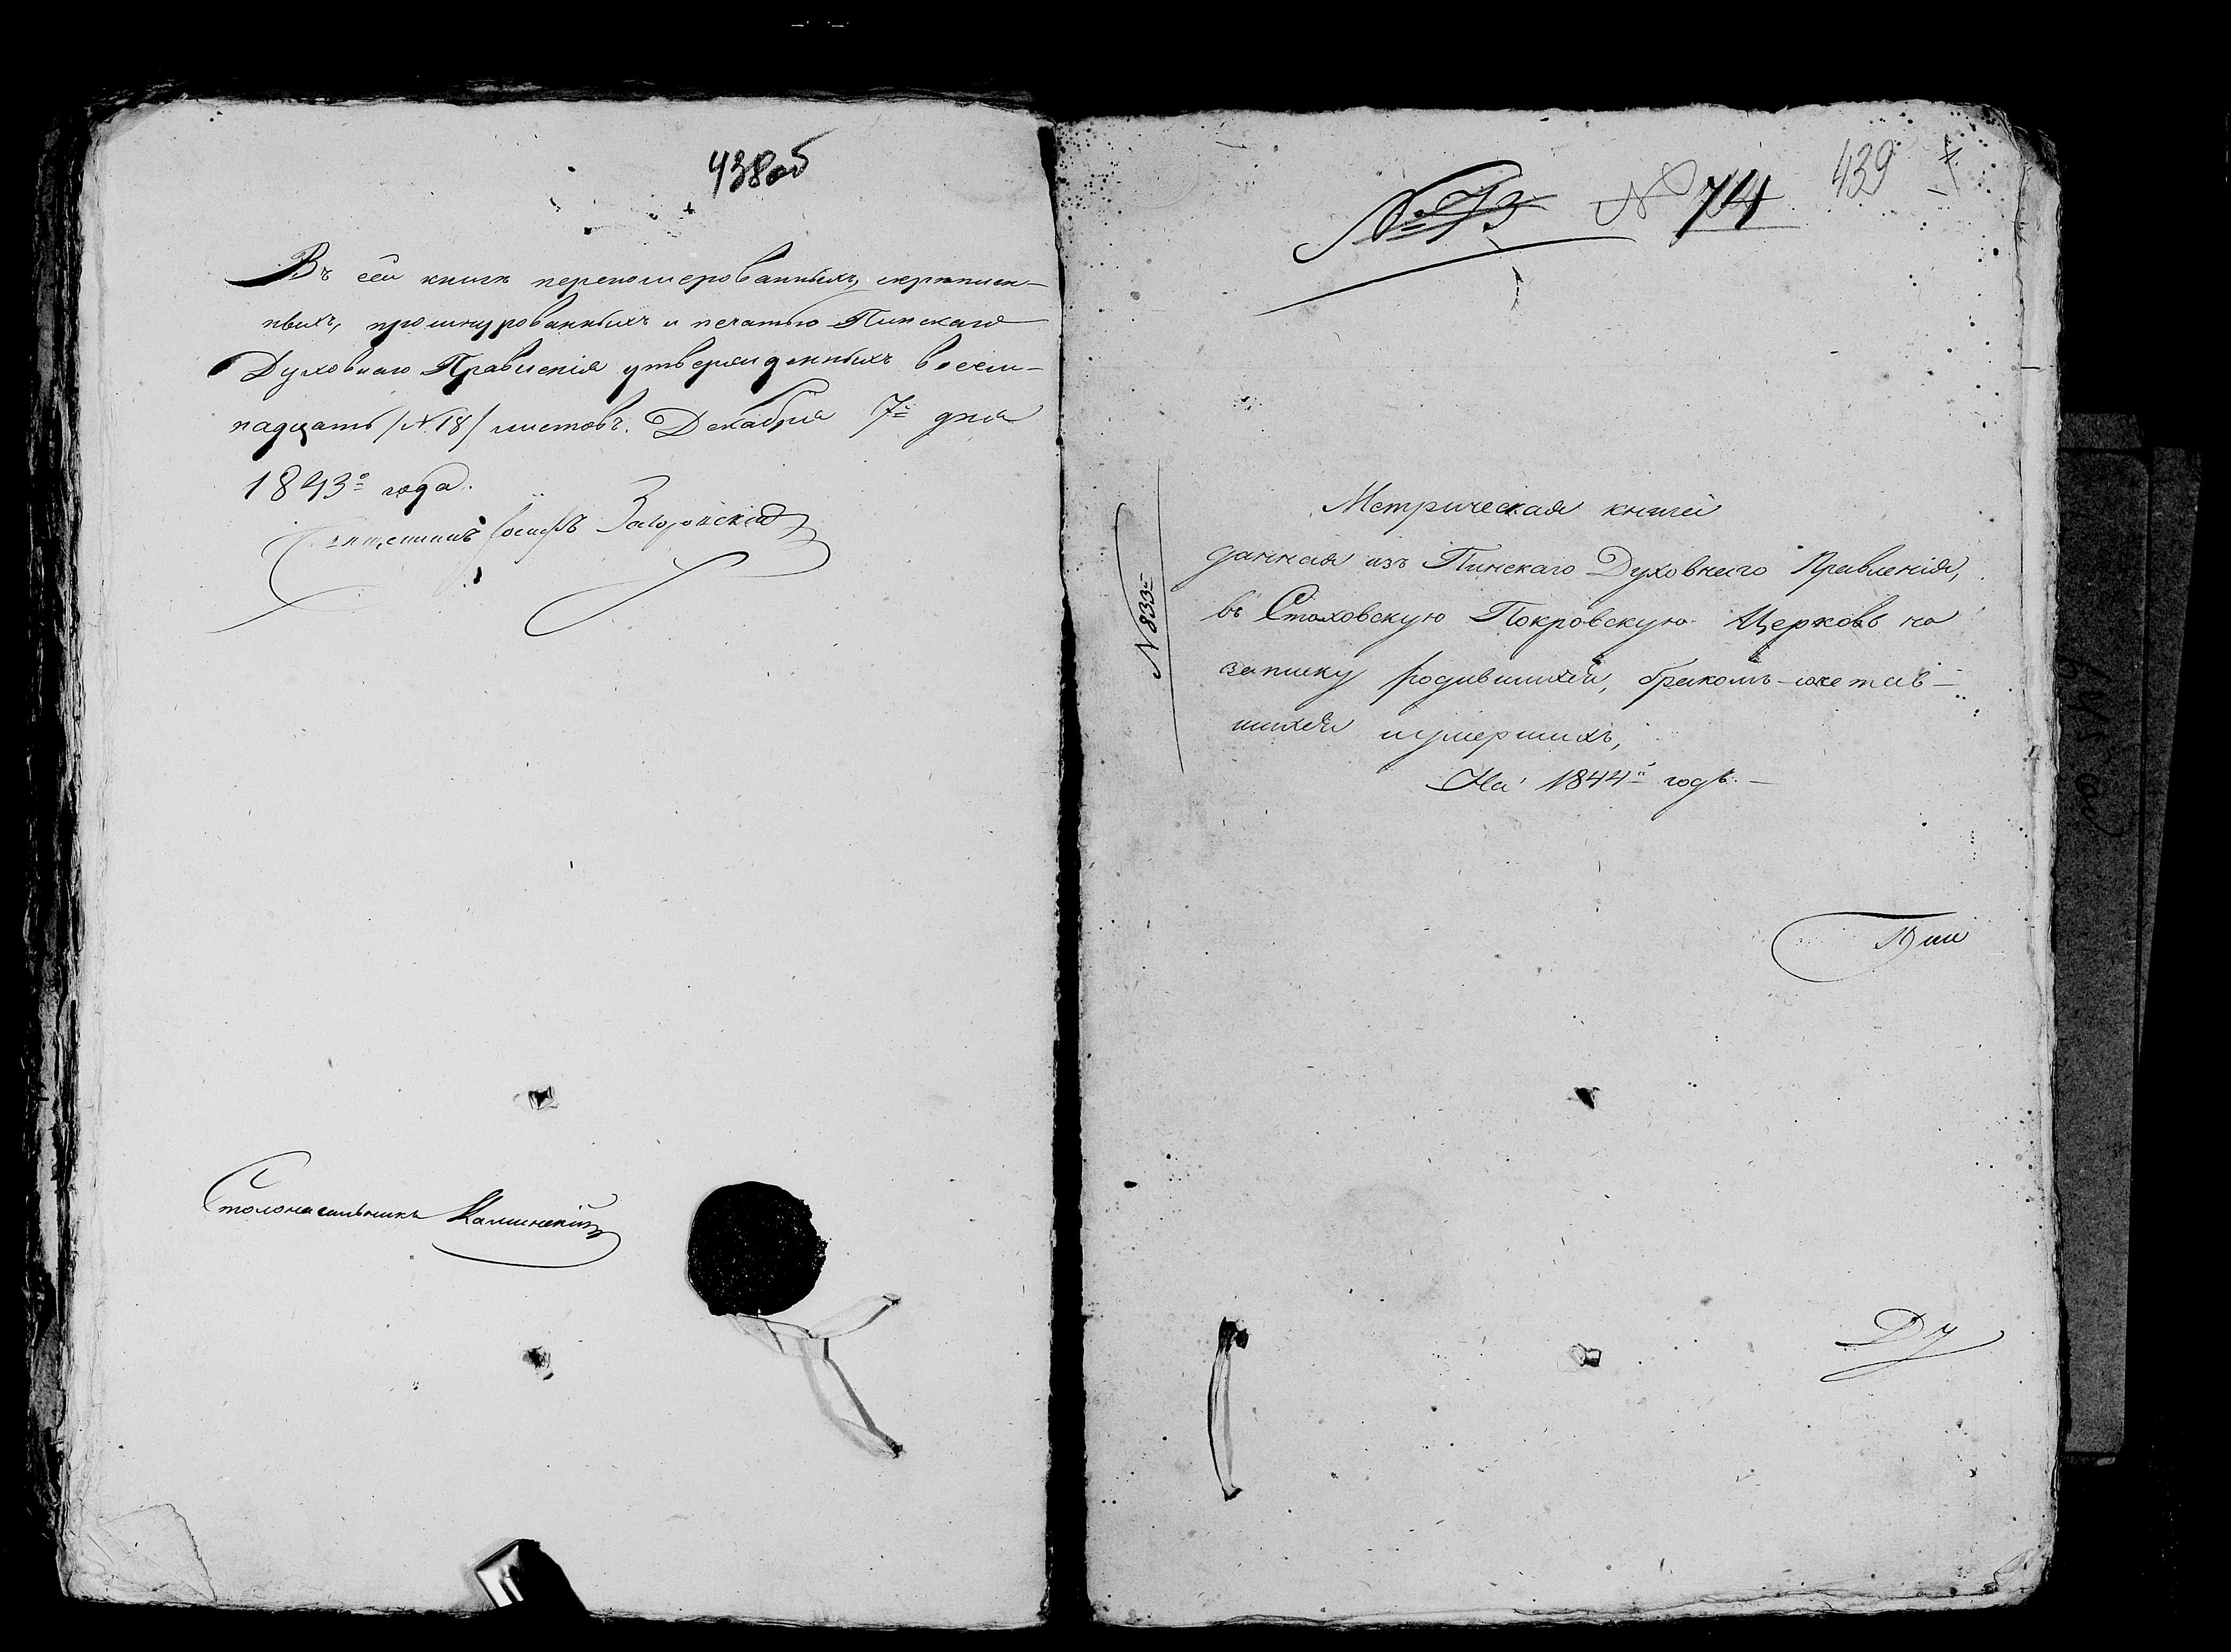 438об
Въ сей книгѣ перенумерованныхъ, скрѣплен-
ныхъ, прошнурованныхъ и печатью Пинскаго
Духовнаго Правленія утвержденныхъ восем-
надцать /№ 18/ листовъ. Декабря 7го дня
1843го года.
Священникъ Іосифъ
Столоначальникъ Калинскій
№ 73 № 74 439
№ 833
Метрическая книга
данная изъ Пинскаго Духовнаго Правленія,
въ Стаховскую Покровскую Церковь на
записку родившихся, бракомъ-сочетав-
шихся и умершихъ,
На 1844й годъ. —
Пин
Ду